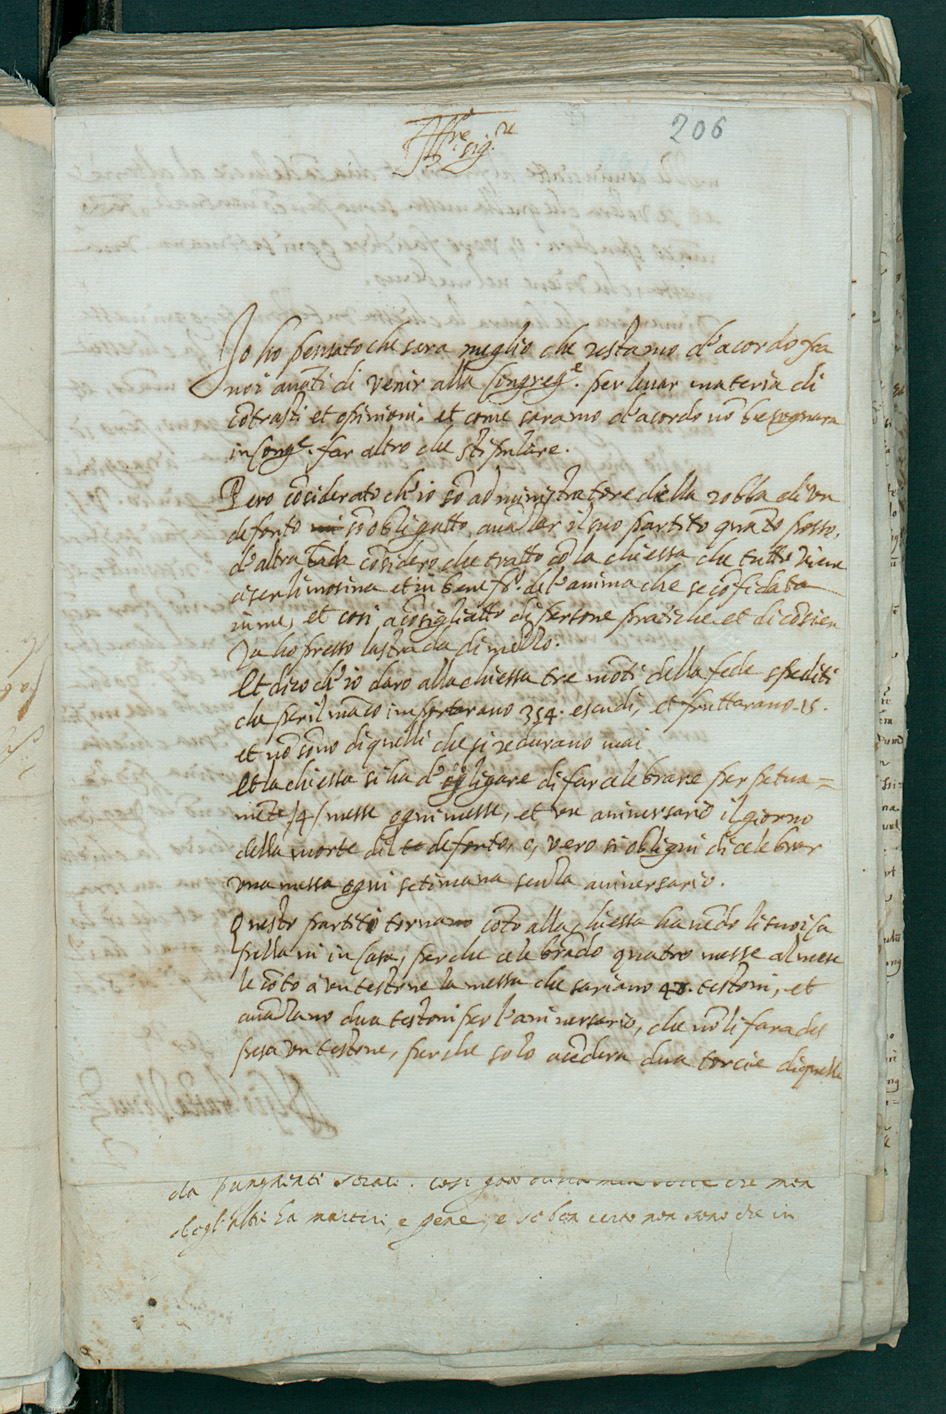 206
Ill.re sig.re
Io ho pensato che sara meglio che restamo d'acordo fra
noi auãti di venir alla Congreg.e per leuar materia di
cõtrasti et opinioni. et come saramo d'acordo nõ besognara
in Cong.e far altro che stipulare.
Pero cõsiderato ch'io sõ administratore della robba di un
defonto sõ obligatto auãzar il suo partito quãto posso,
d'altra cõsidero che tratto cõ la chiessa che tutto viene
a ser limosina et in benef.o de l'anima che se cõfidata
in me, et cosi acõsigliatto di persone pratiche et di cõscien
za ho presso la strada di mezzo.
Et dico ch'io daro alla chiessa tre mõti della fede spediti
che per il maco importarano 354. escudi, et fruttarano 15.
et nõ sono di quelli che si redurano mai
et la chiessa si ha d'obligare di far celebrare perpetua=
mẽte /4/ messe ogni messe, et un aniversario il giorno
della morte del defonto, o, vero si obligni di celebrar
una messa ogni setimana senza aniversario.
Questo partito torna cõto alla chiessa hauẽdo li suoi ca
pellani in casa, perche celebrãdo quatro messe al mese
le cõto a un testone la messa che sariano 48. testoni, et
auãzano dua testoni per l'aniversario, che nõ li fara des
pesa un testone, perche solo acẽdera dua torcie di quelle
da pungenti strali. cosi
degl'altri ha martiri, e pene, e so ben certo non sono che in